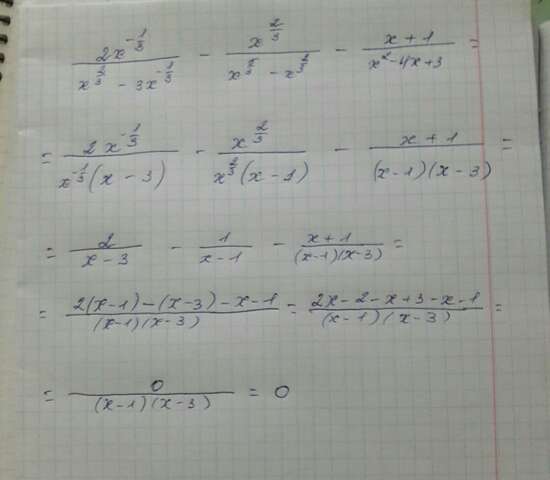 2x^{-1/3} / (x^{2/3} - 3x^{-1/3}) - x^{2/3} / (x^{5/3} - x^{2/3}) - (x+1) / (x^2-4x+3) =
= 2x^{-1/3} / (x^{-1/3}(x-3)) - x^{2/3} / (x^{2/3}(x-1)) - (x+1) / ((x-1)(x-3)) =
= 2 / (x-3) - 1 / (x-1) - (x+1) / ((x-1)(x-3)) =
= (2(x-1)-(x-3)-x-1) / ((x-1)(x-3)) = (2x-2-x+3-x-1) / ((x-1)(x-3)) =
= 0 / ((x-1)(x-3)) = 0